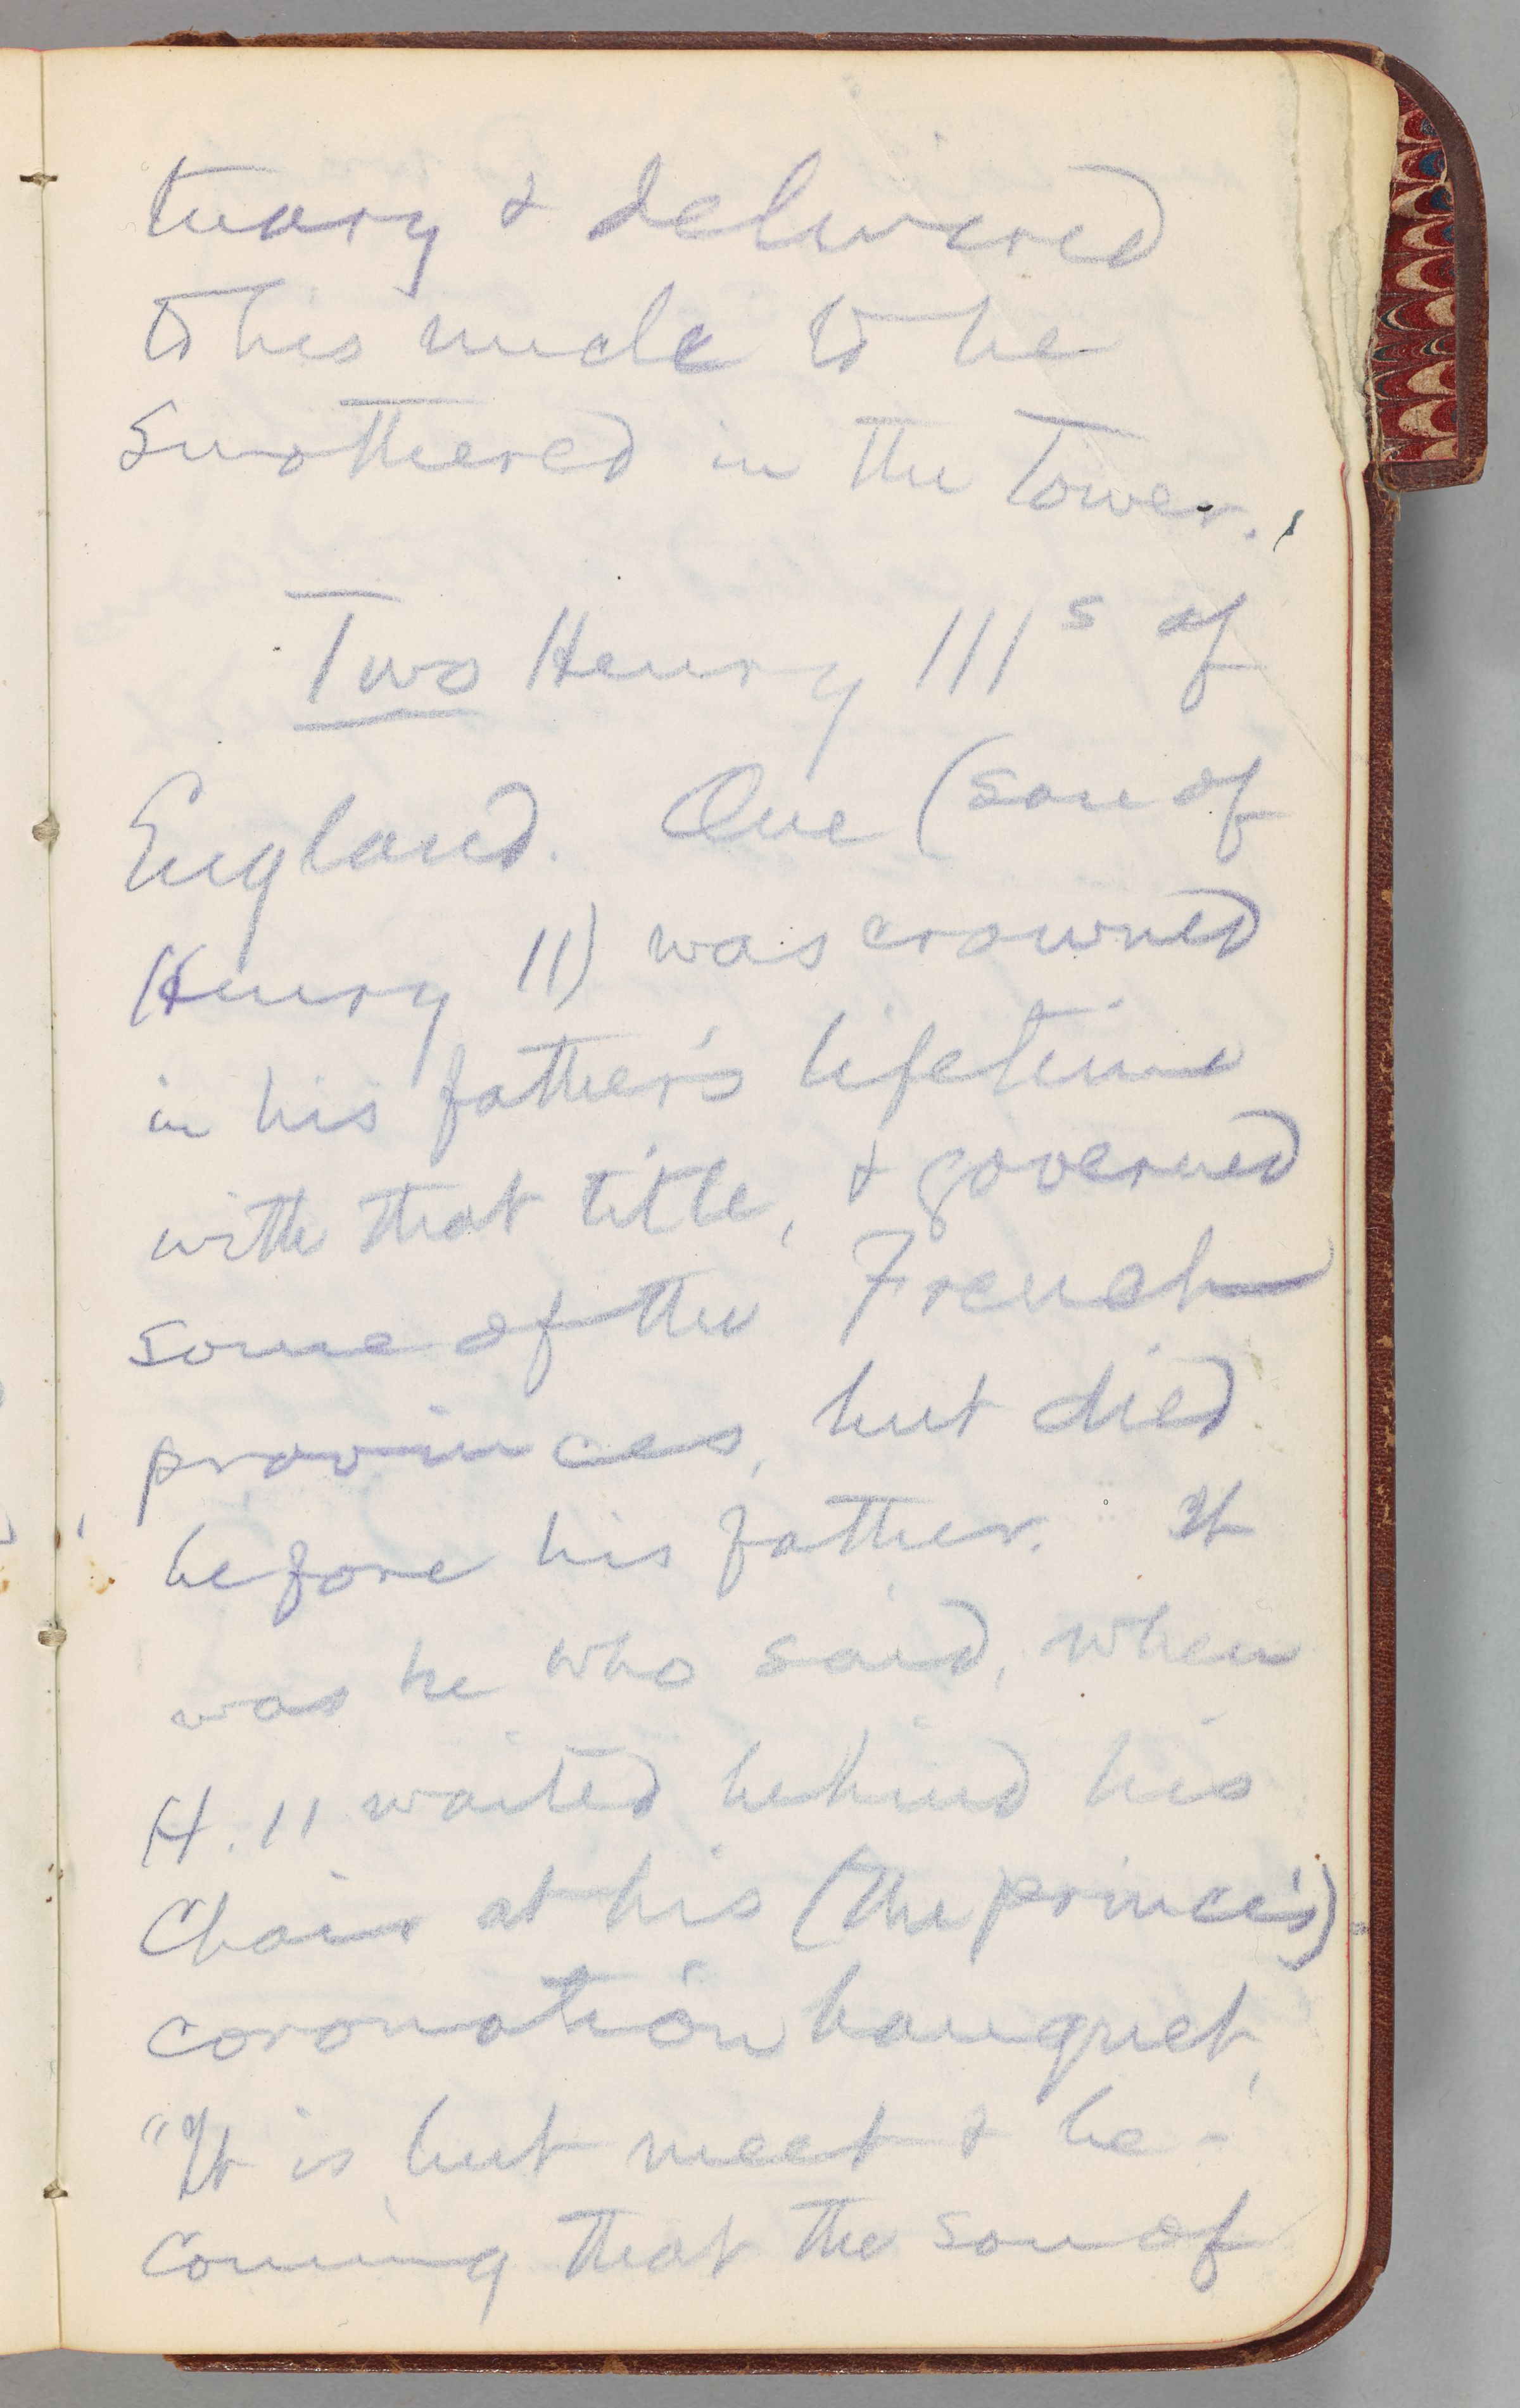 tuary & delivered
to his uncle to be
smothered in the Tower.
Two Henry IIIs of
England. One (son of
Henry II) was crowned
in his father's lifetime
with that title, & governed
some of the French
provinces, but died
before his father. It
was he who said, when
H. II waited behind his
chair at his (the prince's)
coronation banquet,
"It is but meet & be-
coming that the son of